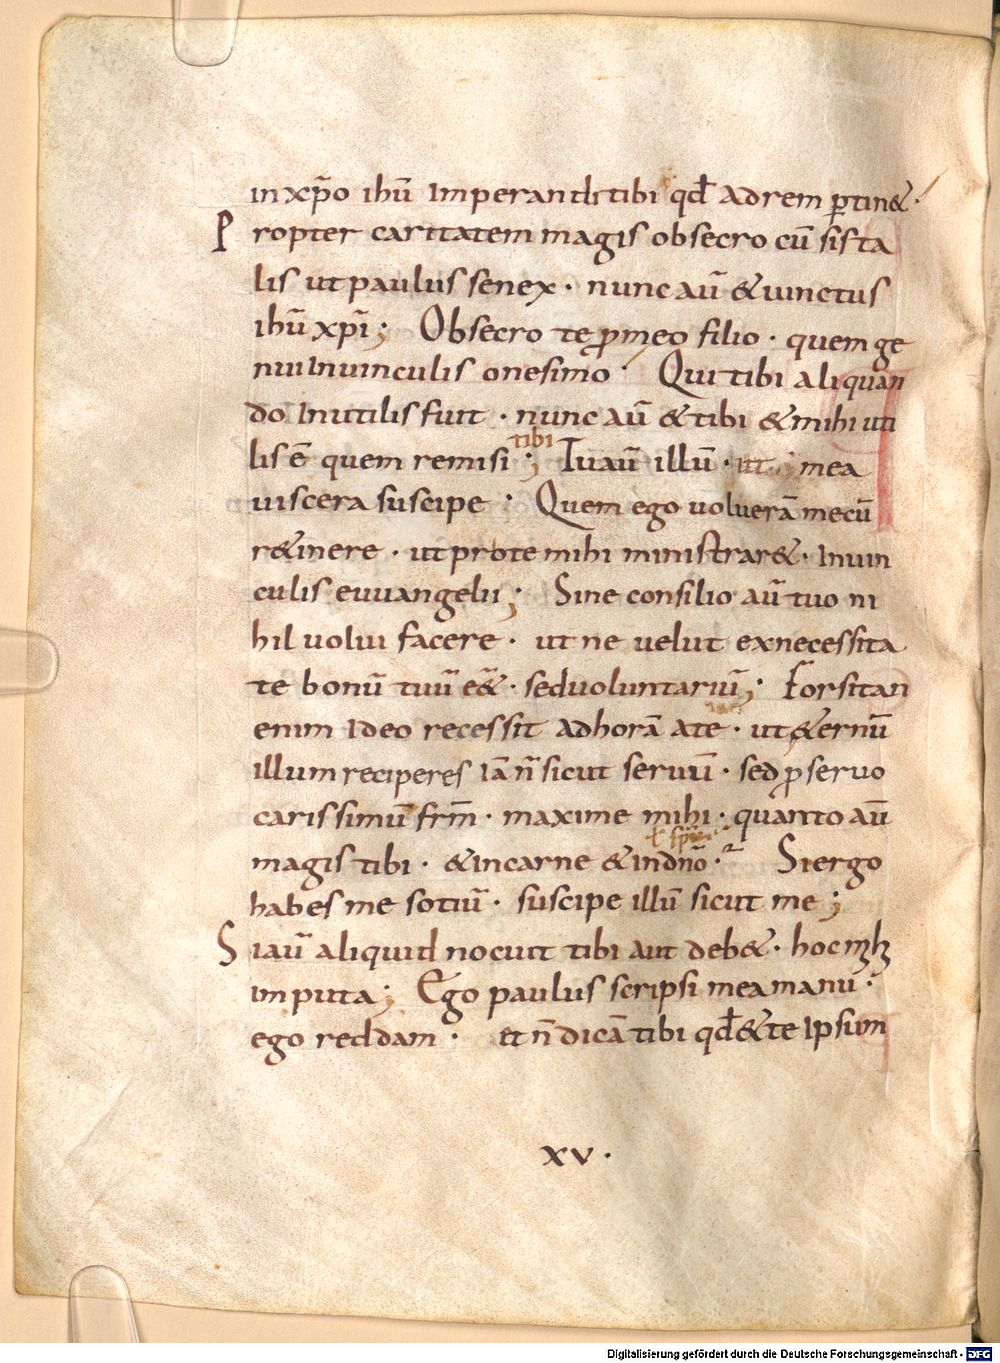 in xp̄o ihū Imperandi tibi qđ ad rem ꝑtin&·
Propter caritatem magis obsecro cū sis ta
lis ut paulus senex · nunc aū & uinctus
ihū xp̄i; Obsecro te ꝓ meo filio · quem ge
nui In uinculis onesimo · Qui tibi aliquan
do Inutilis fuit · nunc aū & tibi & mihi uti
lis ē quem remisi tibi; Tu aū illū · ut mea
uiscera suscipe · Quem ego uolueram̄ mecū
r&inere · ut pro te mihi ministrar& · In uin
culis euuangelii; Sine consilio aū tuo ni
hil uolui facere · ut ne uelut ex necessita
te bonū tuū ēē& · sed uoluntariū; Forsitan
enim Ideo recessit ad horā a te · ut &ernū
illum reciperes Iā n̄ sicut seruū · sed ꝓ seruo
carissimū frm̄ · maxime mihi · quanto aū
magis tibi · & in carne & in dn̄o · Si ergo
habes me sotiū · suscipe illū sicut me;
Si aū aliquid nocuit tibi aut deb& · hoc mihi
imputa; Ego paulus scripsi mea manu ·
ego reddam · et n̄ dicā tibi qđ & te Ipsum
xv ·
Digitalisierung gefördert durch die Deutsche Forschungsgemeinschaft - DFG